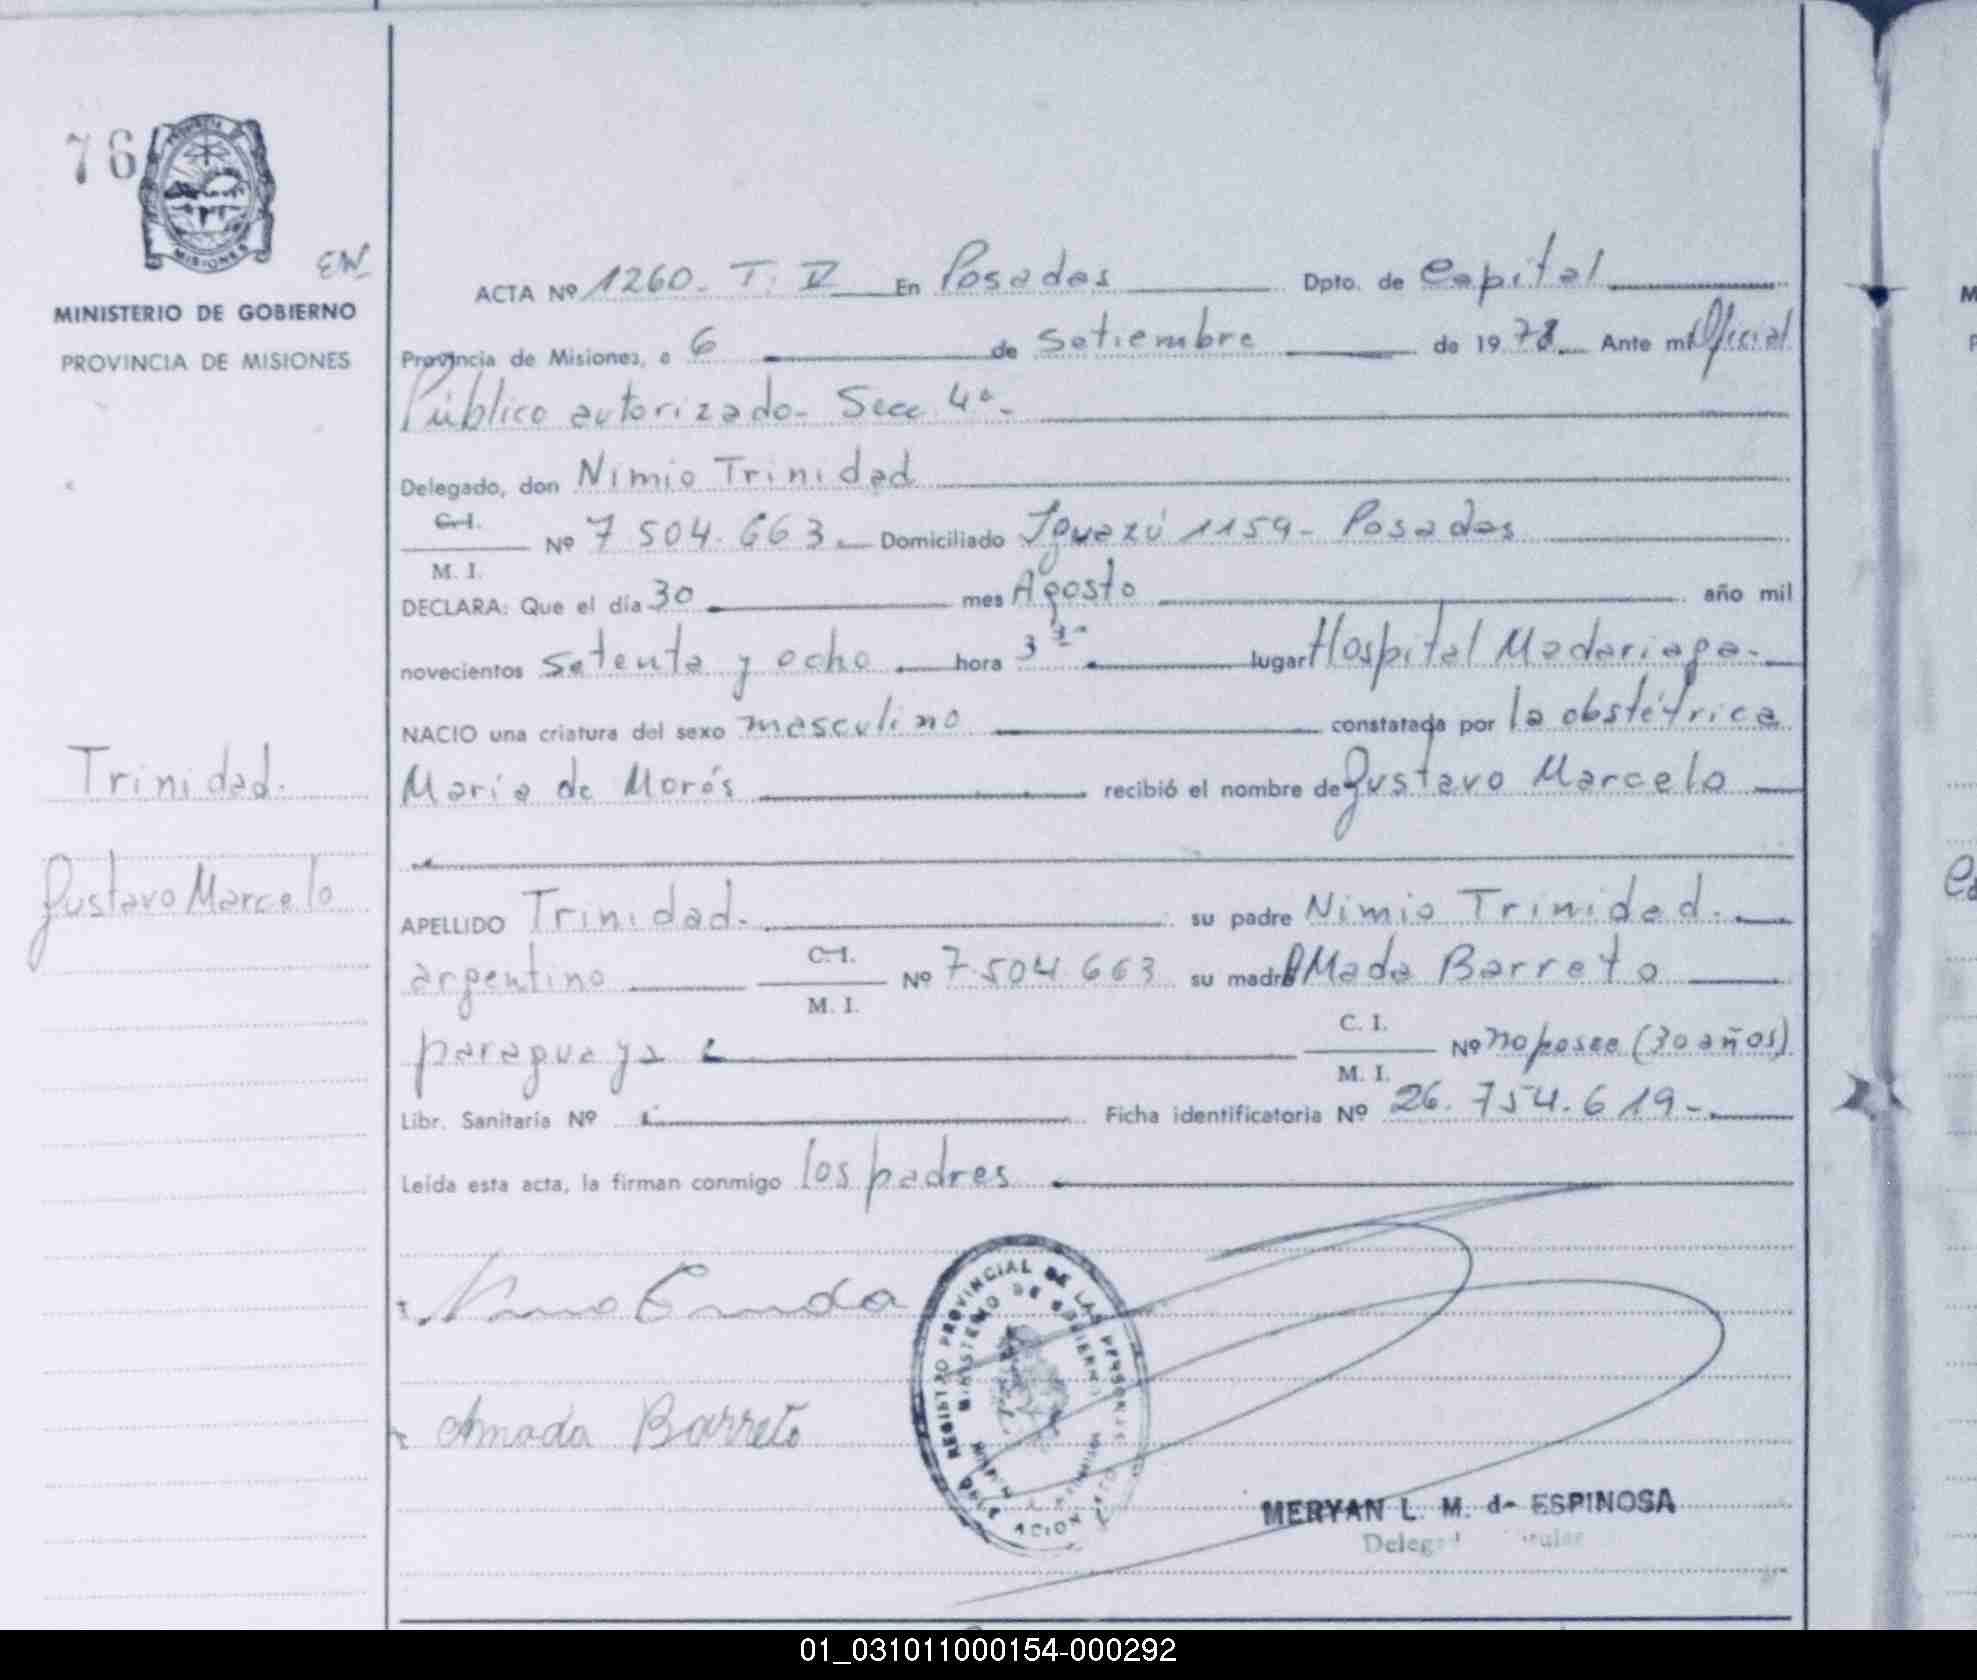 76
PROVINCIA DE
MISIONES
EN
MINISTERIO DE GOBIERNO
PROVINCIA DE MISIONES
Trinidad.
Gustavo Marcelo
ACTA Nº 1260. T. V En Posadas Dpto. de Capital
Provincia de Misiones, a 6 de setiembre de 1978. Ante mí Oficial
Público autorizado- Secc 4ª-
Delegado, don Nimio Trinidad
C. I.
Nº 7 504. 663. Domiciliado Iguazú 1159- Posadas
M. I.
DECLARA: Que el día 30 mes Agosto año mil
novecientos setenta y ocho hora 3 lugar Hospital Madariaga-
NACIO una criatura del sexo masculino constatada por la obstétrica
María de Morós recibió el nombre de Gustavo Marcelo
APELLIDO Trinidad. su padre Nimio Trinidad.
C. I.
argentino Nº 7.504.663 su madre AMada Barreto
M. I.
C. I.
paraguaya Nº no posee (30 años)
M. I.
Libr. Sanitaria Nº Ficha identificatoria Nº 26.754.619-
Leída esta acta, la firman conmigo los padres
Amada Barreto
REGISTRO PROVINCIAL DE LAS PERSONAS
MINISTERIO DE GOBIERNO
MERYAN L. M. de ESPINOSA
01_031011000154-000292